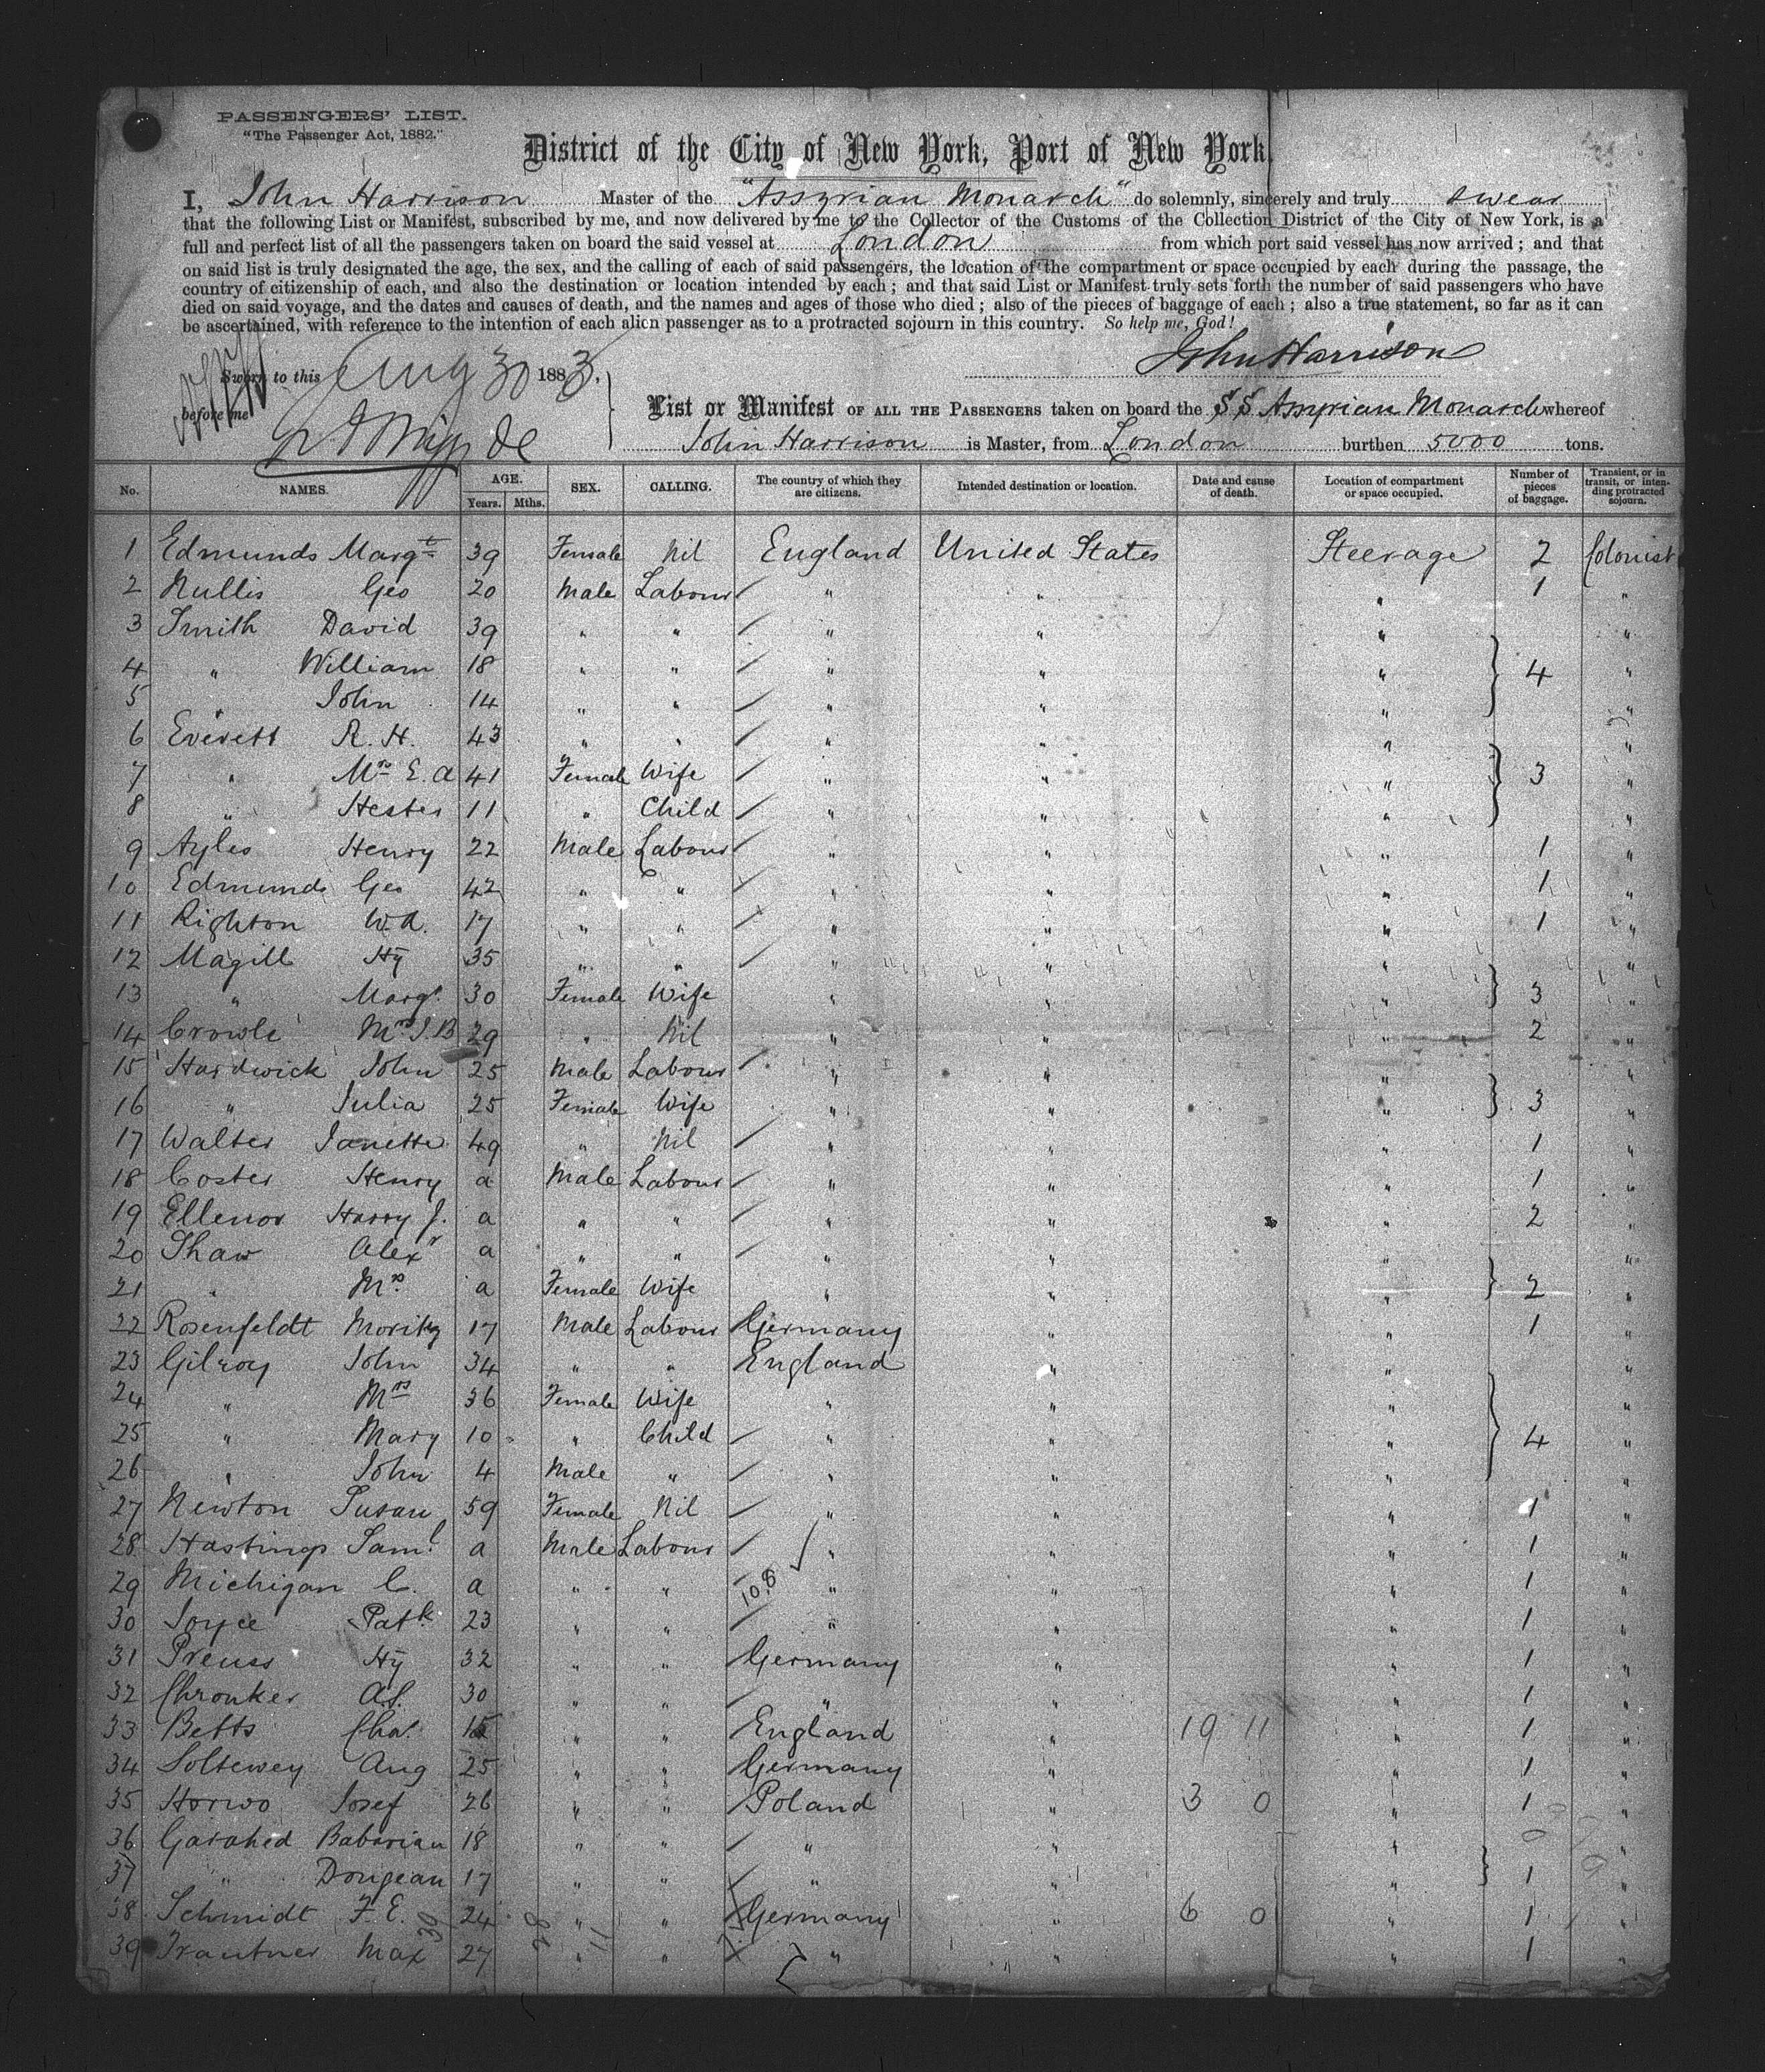 PASSENGERS' LIST.
"The Passenger Act, 1882."
District of the City of New York, Port of New York
I, John Harrison Master of the "Assyrian Monarch" do solemnly, sincerely and truly swear
that the following List or Manifest, subscribed by me, and now delivered by me to the Collector of the Customs of the Collection District of the City of New York, is a
full and perfect list of all the passengers taken on board the said vessel at London from which port said vessel has now arrived; and that
on said list is truly designated the age, the sex, and the calling of each of said passengers, the location of the compartment or space occupied by each during the passage, the
country of citizenship of each, and also the destination or location intended by each; and that said List or Manifest truly sets forth the number of said passengers who have
died on said voyage, and the dates and causes of death, and the names and ages of those who died; also of the pieces of baggage of each; also a true statement, so far as it can
be ascertained, with reference to the intention of each alien passenger as to a protracted sojourn in this country. So help me, God!
Sworn to this Aug 30 1883. John Harrison
before me
List or Manifest OF ALL THE PASSENGERS taken on board the SS Assyrian Monarch whereof
John Harrison is Master, from London burthen 5000 tons.
No. NAMES. AGE. Years. Mths. SEX. CALLING. The country of which they are citizens. Intended destination or location. Date and cause of death. Location of compartment or space occupied. Number of pieces of baggage. Transient, or in transit, or intending protracted sojourn.
1 Edmunds Margt 39 Female Nil England United States Steerage 2 Colonist
2 Nullis Geo 20 Male Labour " " " 1 "
3 Smith David 39 " " " " " "
4 " William 18 " " " " " 4 "
5 " John 14 " " " " " "
6 Everett R. H. 43 " " " " " "
7 " Mrs E. A 41 Female Wife " " " 3 "
8 " Hester 11 " Child " " " "
9 Ayles Henry 22 Male Labour " " " 1 "
10 Edmunds Geo 42 " " " " " 1 "
11 Righton W.A. 17 " " " " " 1 "
12 Magill Hy 35 " " " " " "
13 " Margt. 30 Female Wife " " " 3 "
14 Crowle Mrs J.B 29 " Nil " " " 2 "
15 Hardwick John 25 Male Labour " " " "
16 " Julia 25 Female Wife " " " 3 "
17 Walter Janette 49 " Nil " " " 1 "
18 Coster Henry a Male Labour " " " 1 "
19 Ellenor Harry J. a " " " " " 2 "
20 Shaw Alexr a " " " " " "
21 " Mrs. a Female Wife " " " 2 "
22 Rosenfeldt Moritz 17 Male Labour Germany " " 1 "
23 Gilroy John 34 " " England " " "
24 " Mrs 36 Female Wife " " " "
25 " Mary 10 " Child " " " 4 "
26 " John 4 Male " " " " "
27 Newton Susan 59 Female Nil " " " 1 "
28 Hastings Saml. a Male Labour " " " 1 "
29 Michigan C. a " " 108 " " " 1 "
30 Joyce Patk. 23 " " " " " 1 "
31 Preuss Hy 32 " " Germany " " 1 "
32 Chronker Af. 30 " " " " " 1 "
33 Betts Chas. 15 " " England " 19 11 " 1 "
34 Soltewey Aug 25 " " Germany " " 1 "
35 Horwo Josef 26 " " Poland " 3 0 " 1 "
36 Garahed Babarian 18 " " " " " "
37 " Dougean 17 " " " " " 1 "
38 Schmidt F. E. 24 " " Germany " 6 0 " 1 "
39 Trautner Max 27 " " " " " 1 "
30 28 11